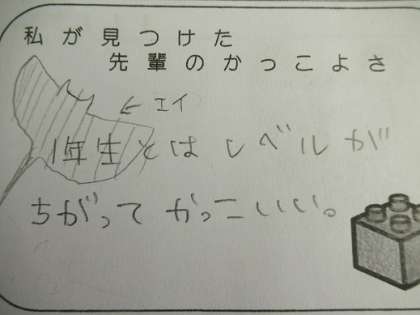 私が見つけた
先輩のかっこよさ
← エイ
1年生とはレベルが
ちがってかっこいい。